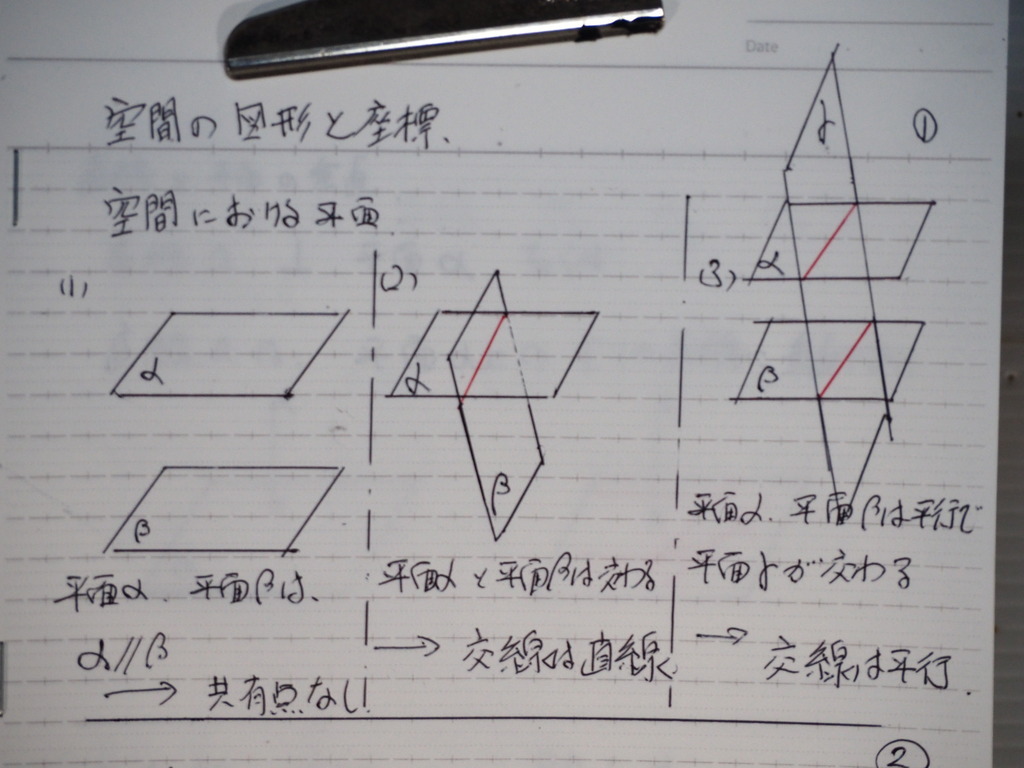 Date
①
空間の図形と座標、
空間における平面
(1)
α
β
平面α、平面βは、
α//β
→ 共有点なし!
(2)
α
β
平面αと平面βは交わる
→ 交線は直線
(3)
γ
α
β
平面α、平面βは平行で
平面γが交わる
→ 交線は平行.
②